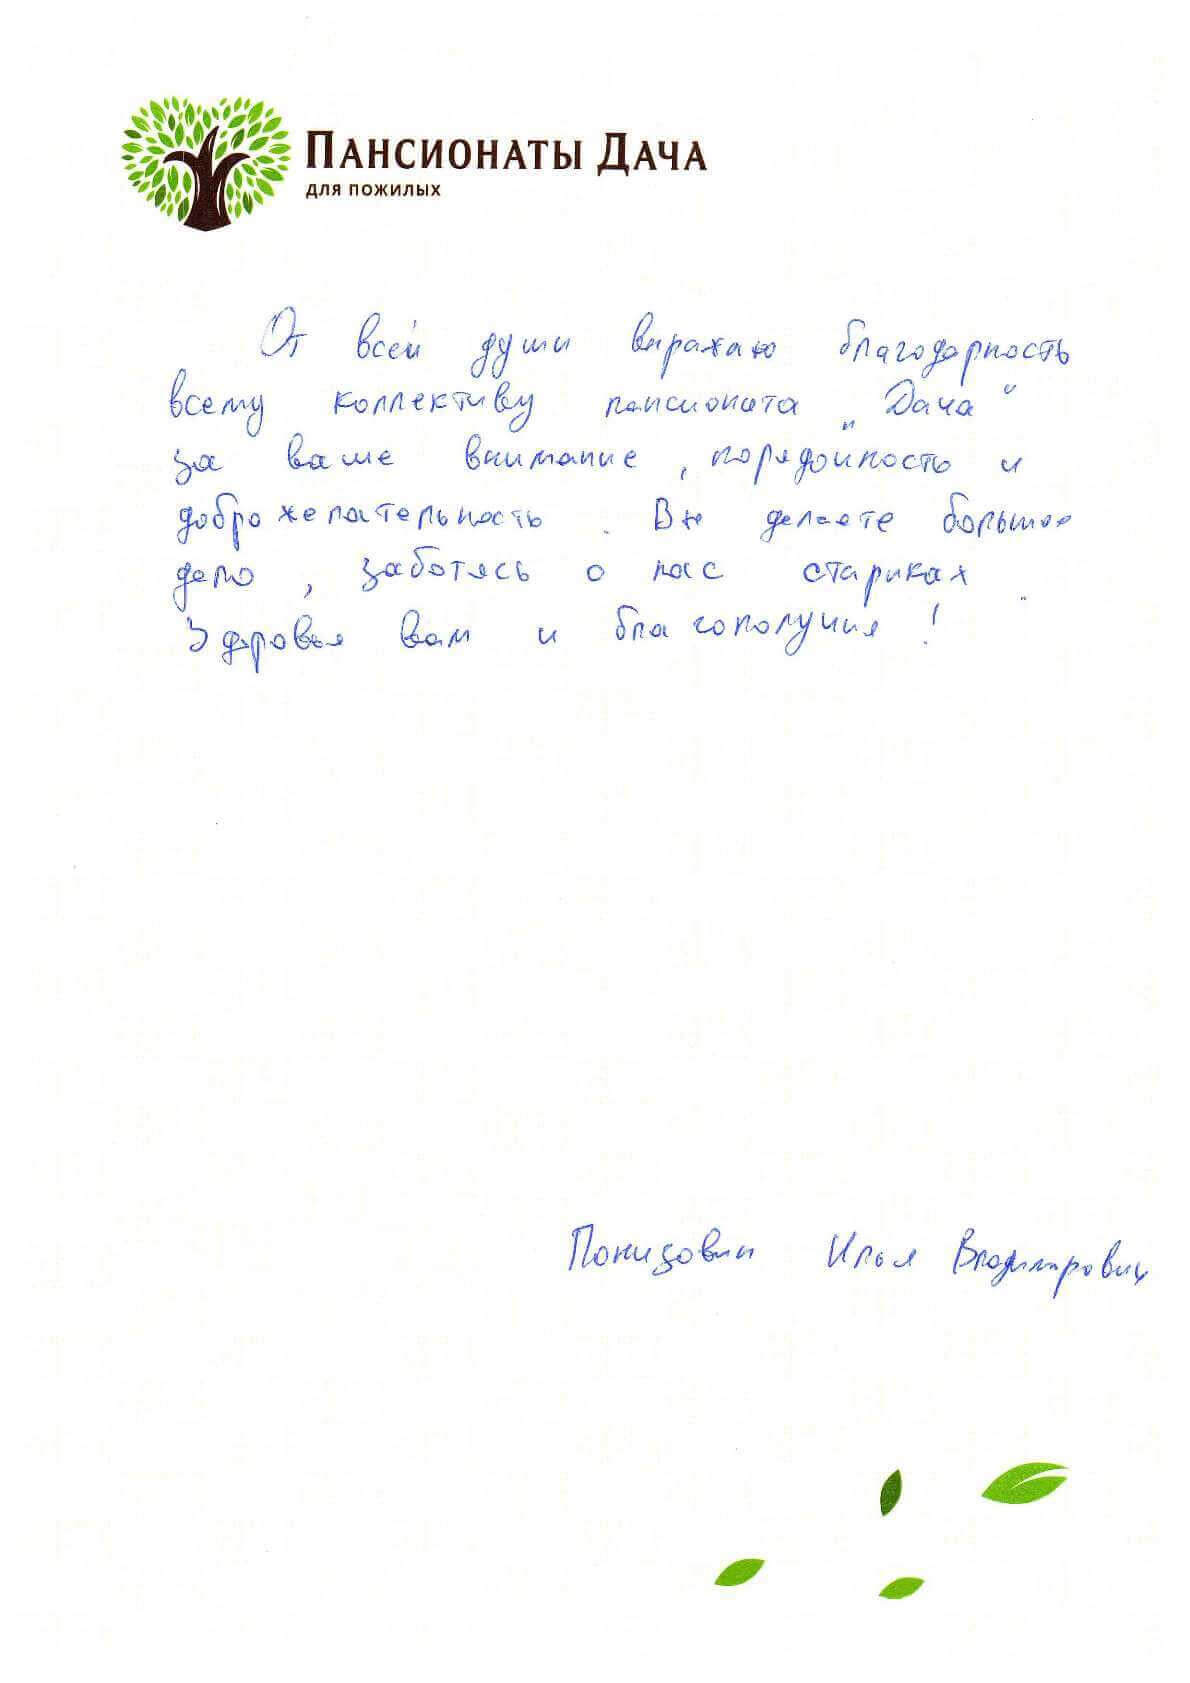 ПАНСИОНАТЫ ДАЧА
ДЛЯ ПОЖИЛЫХ
От всей души выражаю благодарность
всему коллективу пансионата „Дача“
за ваше внимание, порядочность и
доброжелательность. Вы делаете большое
дело, заботясь о нас стариках
Здоровья вам и благополучия!
Понизовин Илья Владимирович